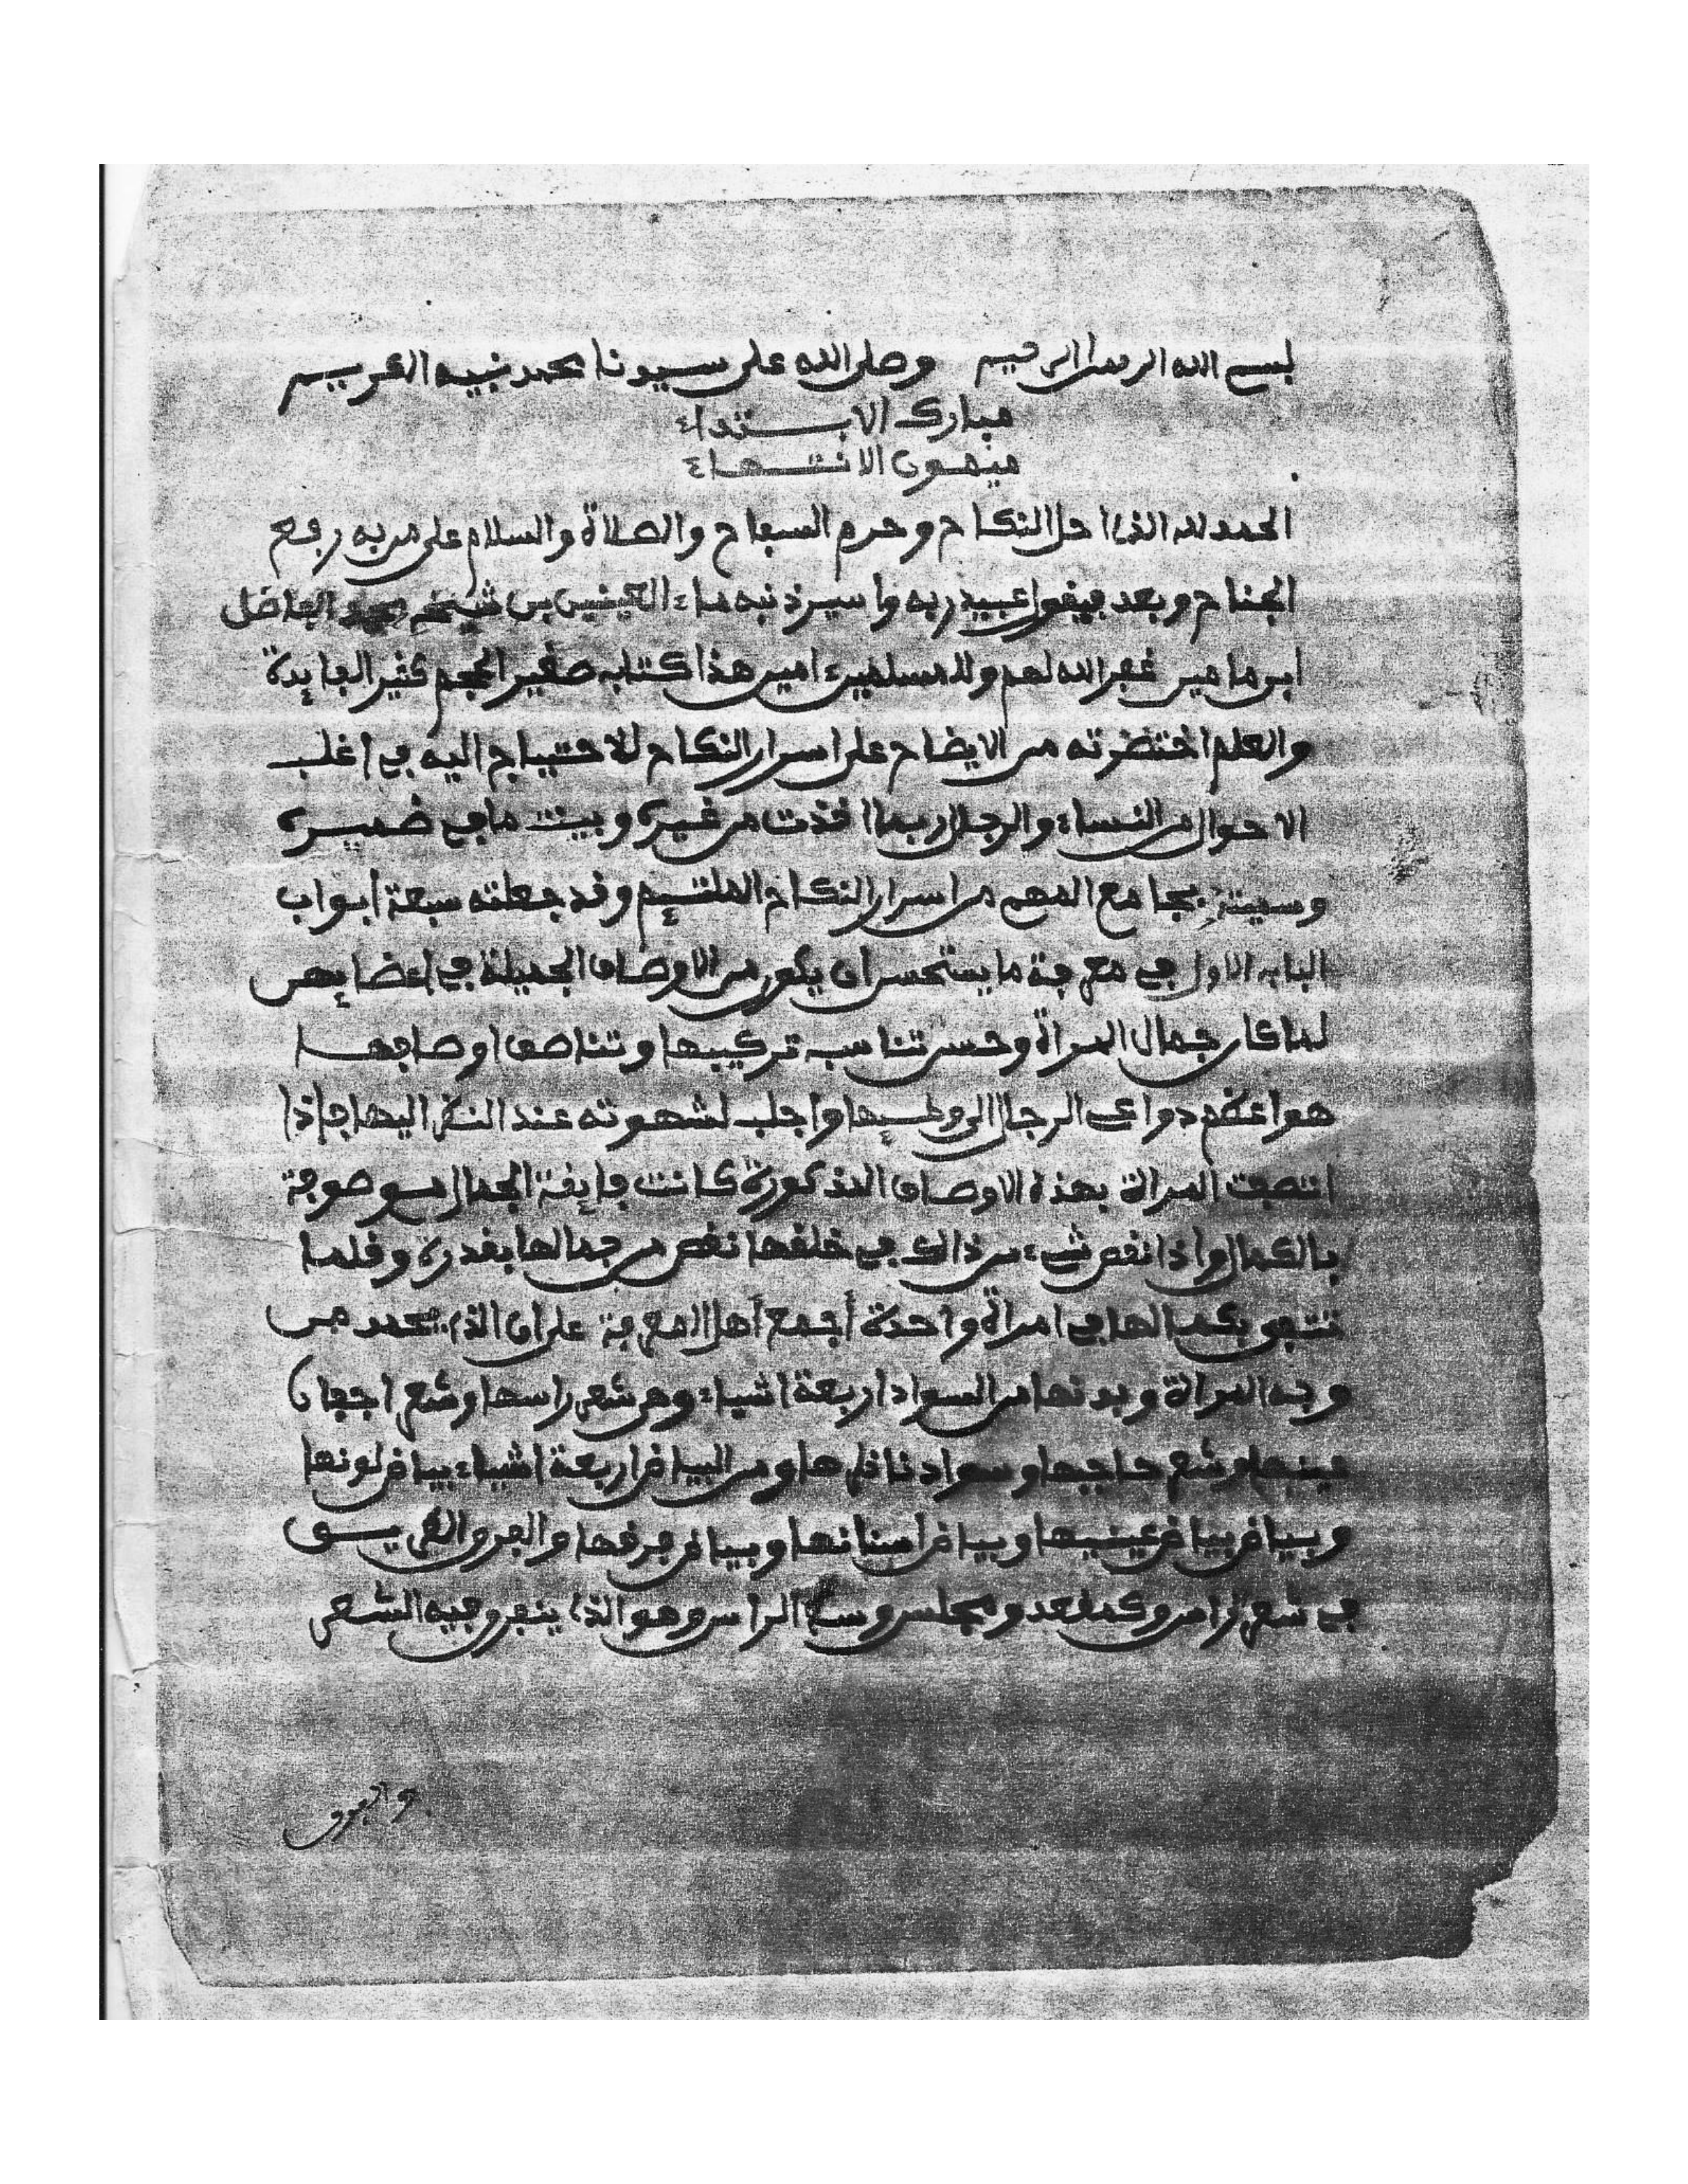 بسم الله الرحمن الرحيم وصلى الله على سيدنا محمد نبيه الكريم
مبارك الابتداء
ميمون الانتهاء
الحمد لله الذي احل النكاح وحرم السفاح والصلاة والسلام على من به رفع
الجناح وبعد فيقول عبيد ربه واسير ذنبه ماء العينين بن شيخه محمد الفاضل
ابن مامين غفر الله لهم وللمسلمين ءامين هذا كتاب صغير الحجم كثير الفايدة
والعلم اختصرته من الايضاح على اسرار النكاح للاحتياج اليه في اغلب
الاحوال من النساء والرجال ربما اخذت من غيره وبينت ما في ضميره
وسميته بجامع المهم من اسرار النكاح الملتئم وقد جعلته سبعة أبواب
الباب الاول في معرفة ما يستحسن ان يكون من الاوصاف الجميلة في اعضايهن
لما كان جمال المراة وحسن تناسب تركيبها وتناصف اوصافها
هو اعظم دواعي الرجال الى وطئها واجلب لشهوته عند النظر اليها فإذا
اتصفت المراة بهذه الاوصاف المذكورة كانت فايقة الجمال موصوفة
بالكمال واذا نقص شيء من ذالك في خلقها نقص من جمالها بقدره وقلما
تتفق بكمالها في امراة واحدة أجمع أهل المعرفة على ان الذي يحمد من
وجه المراة وبدنها من السواد اربعة اشياء وهي شعر راسها وشعر اجفان
عينيها وشعر حاجبها وسواد ناظرها ومن البياض اربعة اشياء بياض لونها
وبياض بياض عينيها وبياض اسنانها وبياض فرقها والفرق الطريق
في شعر الراس وكمقعد ومجلس وسط الراس وهو الذي ينفرق فيه الشعر
والفرق